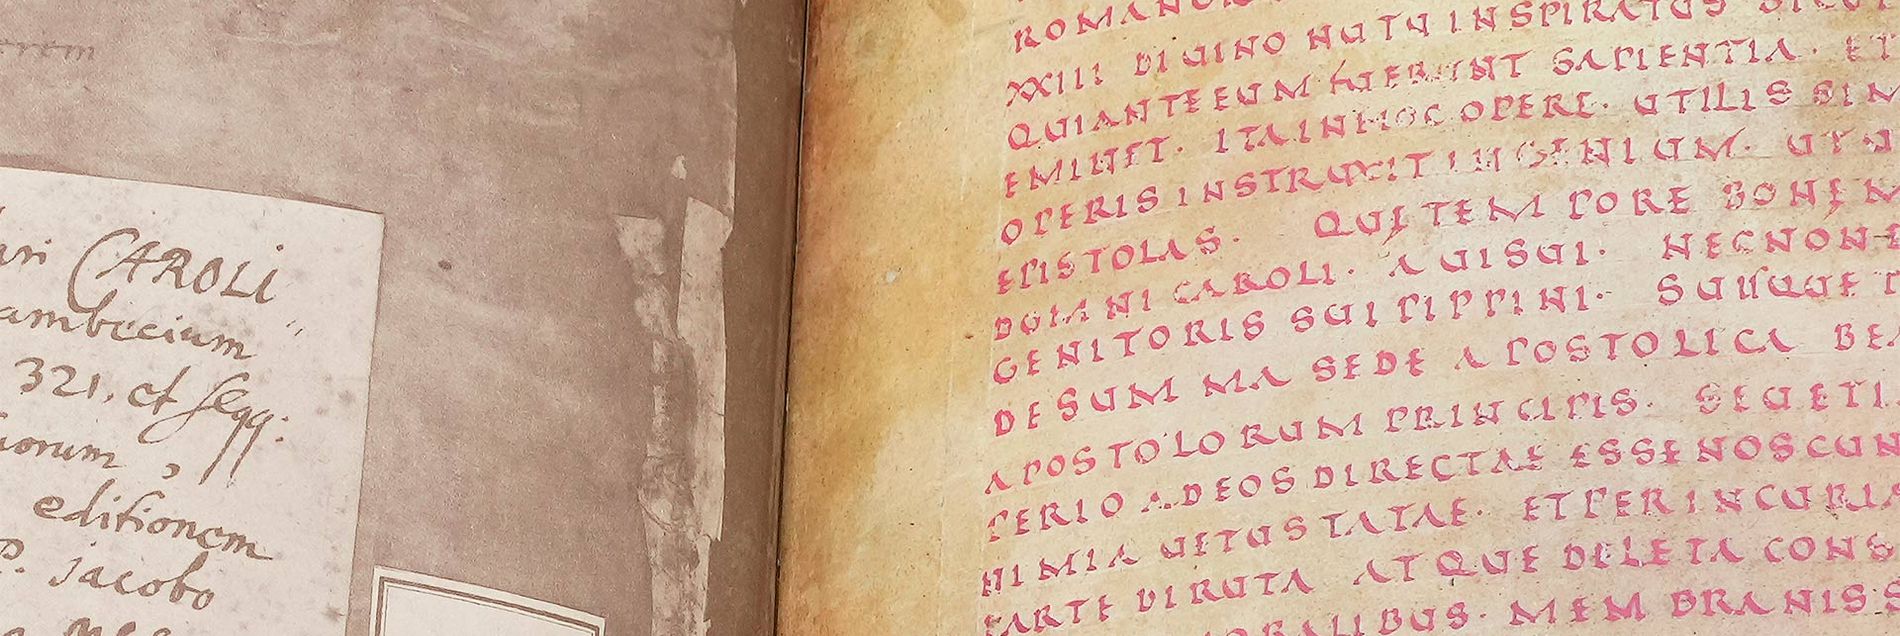 CAROLI
321, et seqq:
editionem
P. Jacobo
XXIII DIUINO NUTU INSPIRATUS
QUIANTEEUM FUERUNT SAPIENTIA · ET
EMINET · ITAINHOC OPERE · UTILIS SIM
OPERIS INSTRUXIT INGENIUM · UT
EPISTOLAS · QUI TEMPORE BONEM
DOMNI CAROLI · AUISUI · NECNONE
GENITORIS SUI PIPPINI · SUUSQUE
DESUMMA SEDE APOSTOLICA BEA
APOSTOLORUM PRINCIPIS · SEUETI
PERIO ADEOS DIRECTAE ESSENOSCUN
NIMIA UETUSTATAE · ETPERINCURIA
PARTE DIRUTA ATQUE DELETA CONS
MEMBRANISS